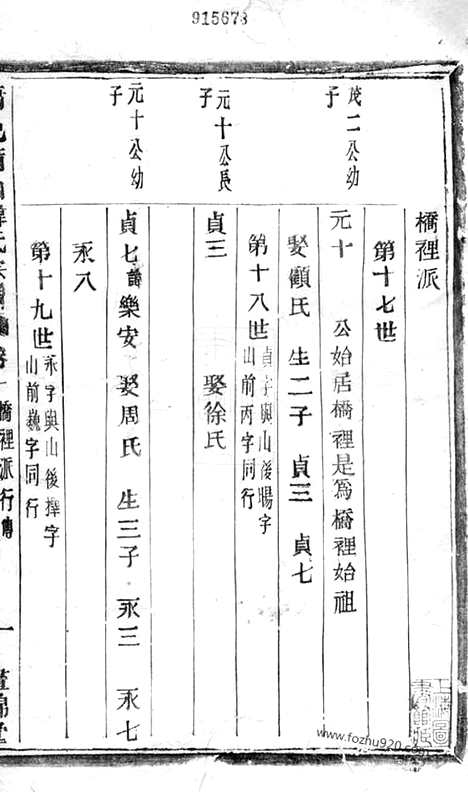 915673
橋裡派
第十七世
茂二公幼子
元十 公始居橋裡是爲橋裡始祖
娶顧氏 生二子 貞三 貞七
第十八世 貞字與山後暘字山前丙字同行
元十公長子
貞三 娶徐氏
元十公幼子
貞七 諱樂安 娶周氏 生三子 永三 永七
永八
第十九世 永字與山後擇字山前巍字同行
橋裡派行傳 一
www.fozhu920.com